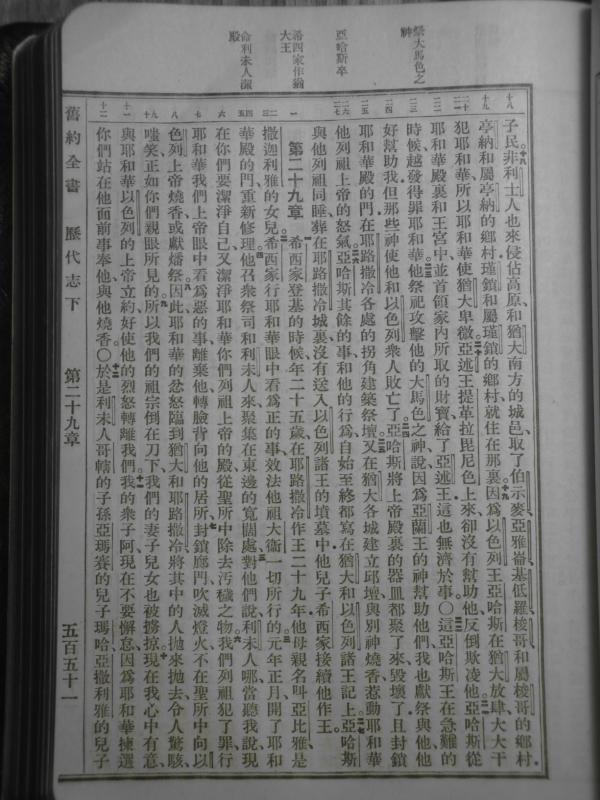 祭大馬色之神
亞哈斯卒
希西家作猶大王
命利未人潔殿
子民、非利士人也來侵佔高原和猶大南方的城邑、取了伯示麥、亞雅崙、基低羅、梭哥和屬梭哥的鄉村、
亭納和屬亭納的鄉村、瑾鎖和屬瑾鎖的鄉村、就住在那裏。因爲以色列王亞哈斯在猶大放肆大大干
犯耶和華、所以耶和華使猶大卑微。亞述王提革拉毘尼色上來、卻沒有幫助他、反倒欺凌他。亞哈斯從
耶和華殿裏和王宮中並首領家內所取的財寶給了亞述王、這也無濟於事。○這亞哈斯王在急難的
時候、越發得罪耶和華。他祭祀攻擊他的大馬色之神、說、因爲亞蘭王的神幫助他們、我也獻祭與他、他
好幫助我。但那些神使他和以色列衆人敗亡了。亞哈斯將上帝殿裏的器皿都聚了來毀壞了、且封鎖
耶和華殿的門、在耶路撒冷各處的拐角建築祭壇。又在猶大各城建立邱壇、與別神燒香、惹動耶和華
他列祖上帝的怒氣。亞哈斯其餘的事和他的行爲、自始至終都寫在猶大和以色列諸王記上。亞哈斯
與他列祖同睡、葬在耶路撒冷城裏、沒有送入以色列諸王的墳墓中。他兒子希西家接續他作王。
第二十九章 希西家登基的時候、年二十五歲、在耶路撒冷作王二十九年。他母親名叫亞比雅、是
撒迦利雅的女兒。希西家行耶和華眼中看爲正的事、效法他祖大衞一切所行的。元年正月、開了耶和
華殿的門、重新修理。他召衆祭司和利未人來、聚集在東邊的寬闊處、對他們說、利未人哪、當聽我說、現
在你們要潔淨自己、又潔淨耶和華你們列祖上帝的殿、從聖所中除去汚穢之物。我們列祖犯了罪、行
耶和華我們上帝眼中看爲惡的事、離棄他、轉臉背向他的居所、封鎖廊門、吹滅燈火、不在聖所中向以
色列上帝燒香、或獻燔祭。因此耶和華的忿怒臨到猶大和耶路撒冷、將其中的人抛來抛去、令人驚駭、
嗤笑、正如你們親眼所見的。所以我們的祖宗倒在刀下、我們的妻子兒女也被擄掠。現在我心中有意
與耶和華以色列的上帝立約、好使他的烈怒轉離我們。我的衆子阿、現在不要懈怠、因爲耶和華揀選
你們站在他面前事奉他、與他燒香。○於是利未人哥轄的子孫亞瑪賽的兒子瑪哈、亞撒利雅的兒子
舊約全書 歷代志下 第二十九章 五百五十一